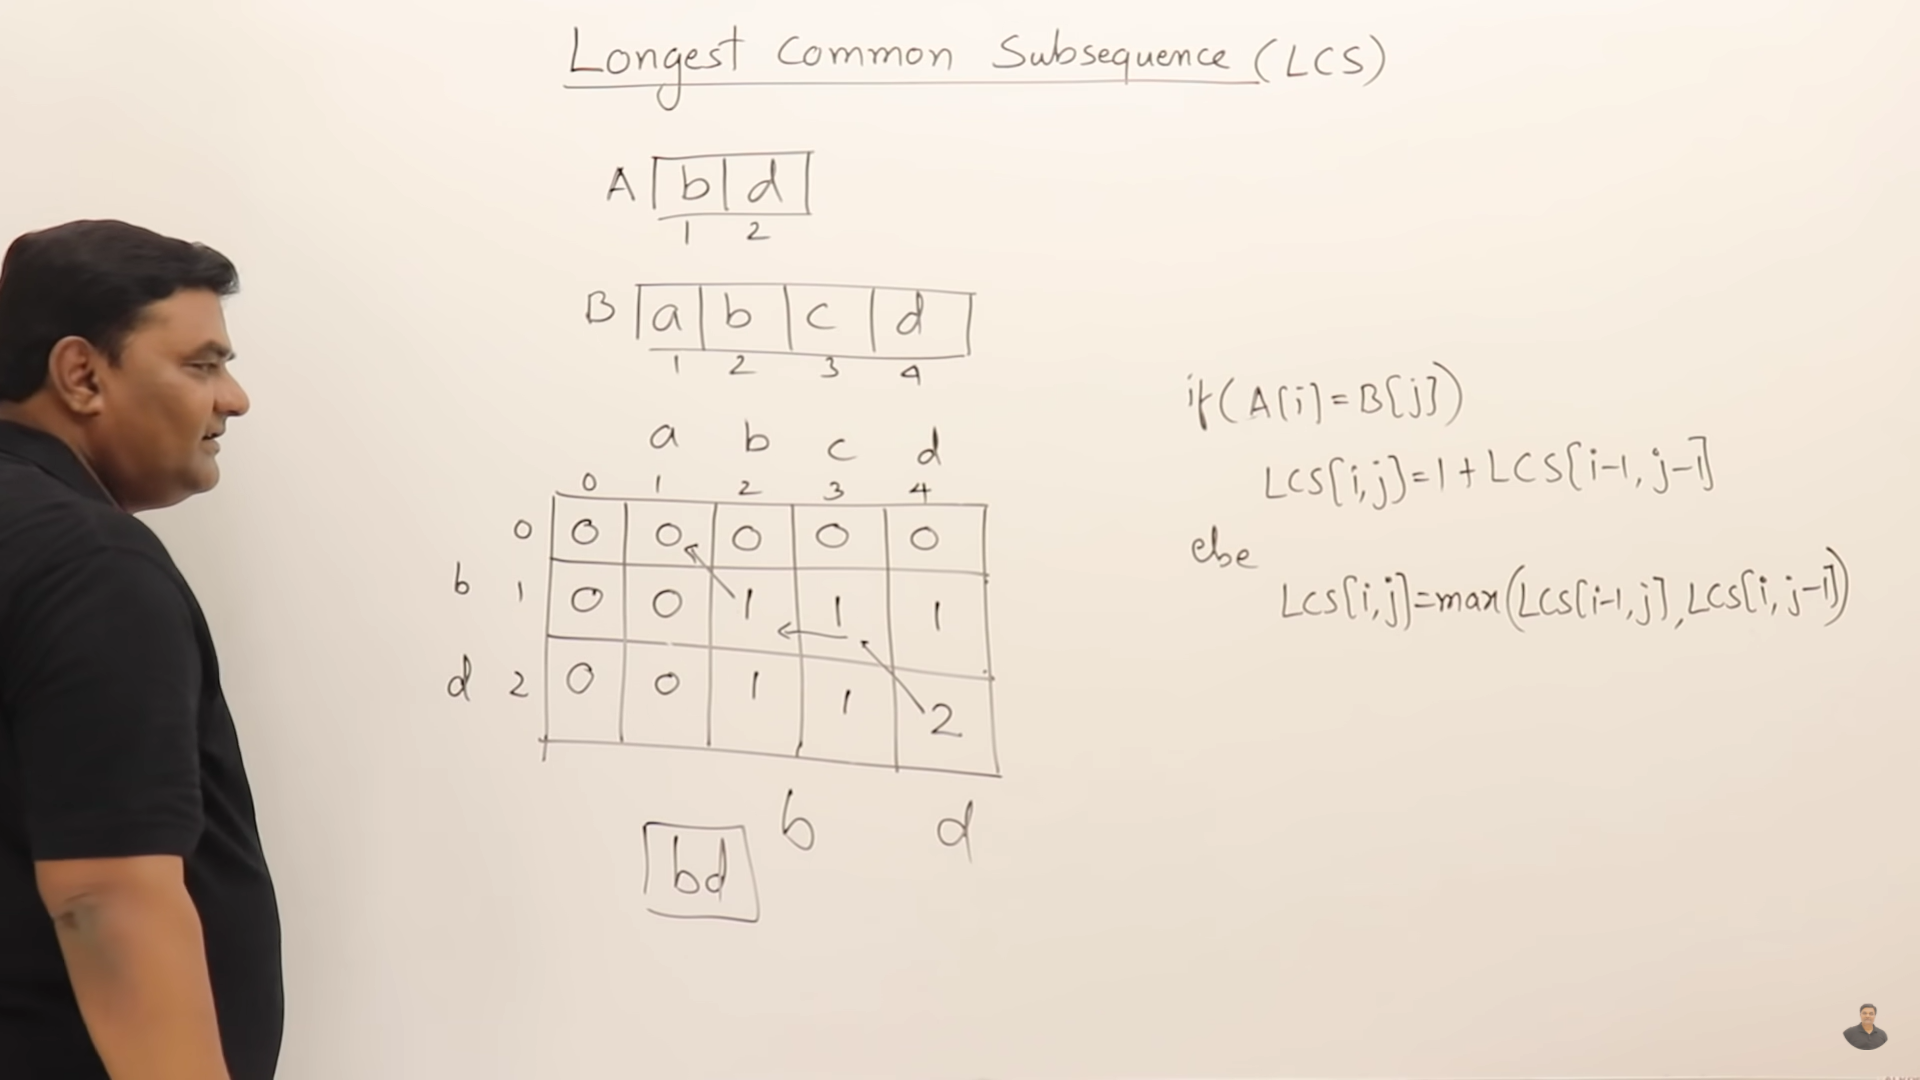 Longest Common Subsequence (LCS)
A b d
1 2
B a b c d
1 2 3 4
a b c d
0 1 2 3 4
0 0 0 0 0 0
b 1 0 0 1 1 1
d 2 0 0 1 1 2
b d
bd
if(A[i]=B[j])
LCS[i,j]=1+LCS[i-1,j-1]
else
LCS[i,j]=max(LCS[i-1,j],LCS[i,j-1])